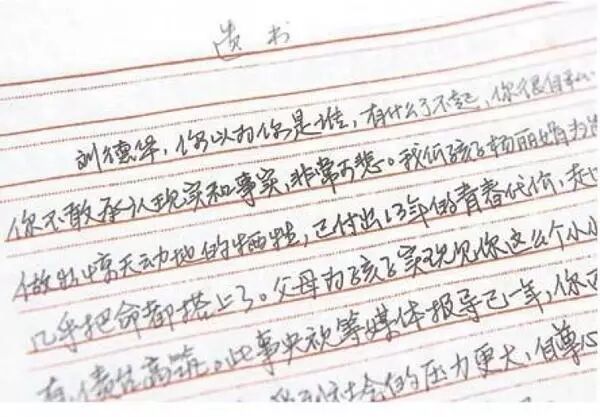 遗书
刘德华，你以为你是谁，有什么了不起，你很自私
你不敢承认现实和事实，非常可悲。我低孩子杨丽娟为
做出惊天动地的牺牲，已付出13年的青春代价，
几乎把命都搭上了。父母为孩子实现见你这么个小小
有，债台高筑。此事央视等媒体报导已一年，你
社会的压力更大，自尊